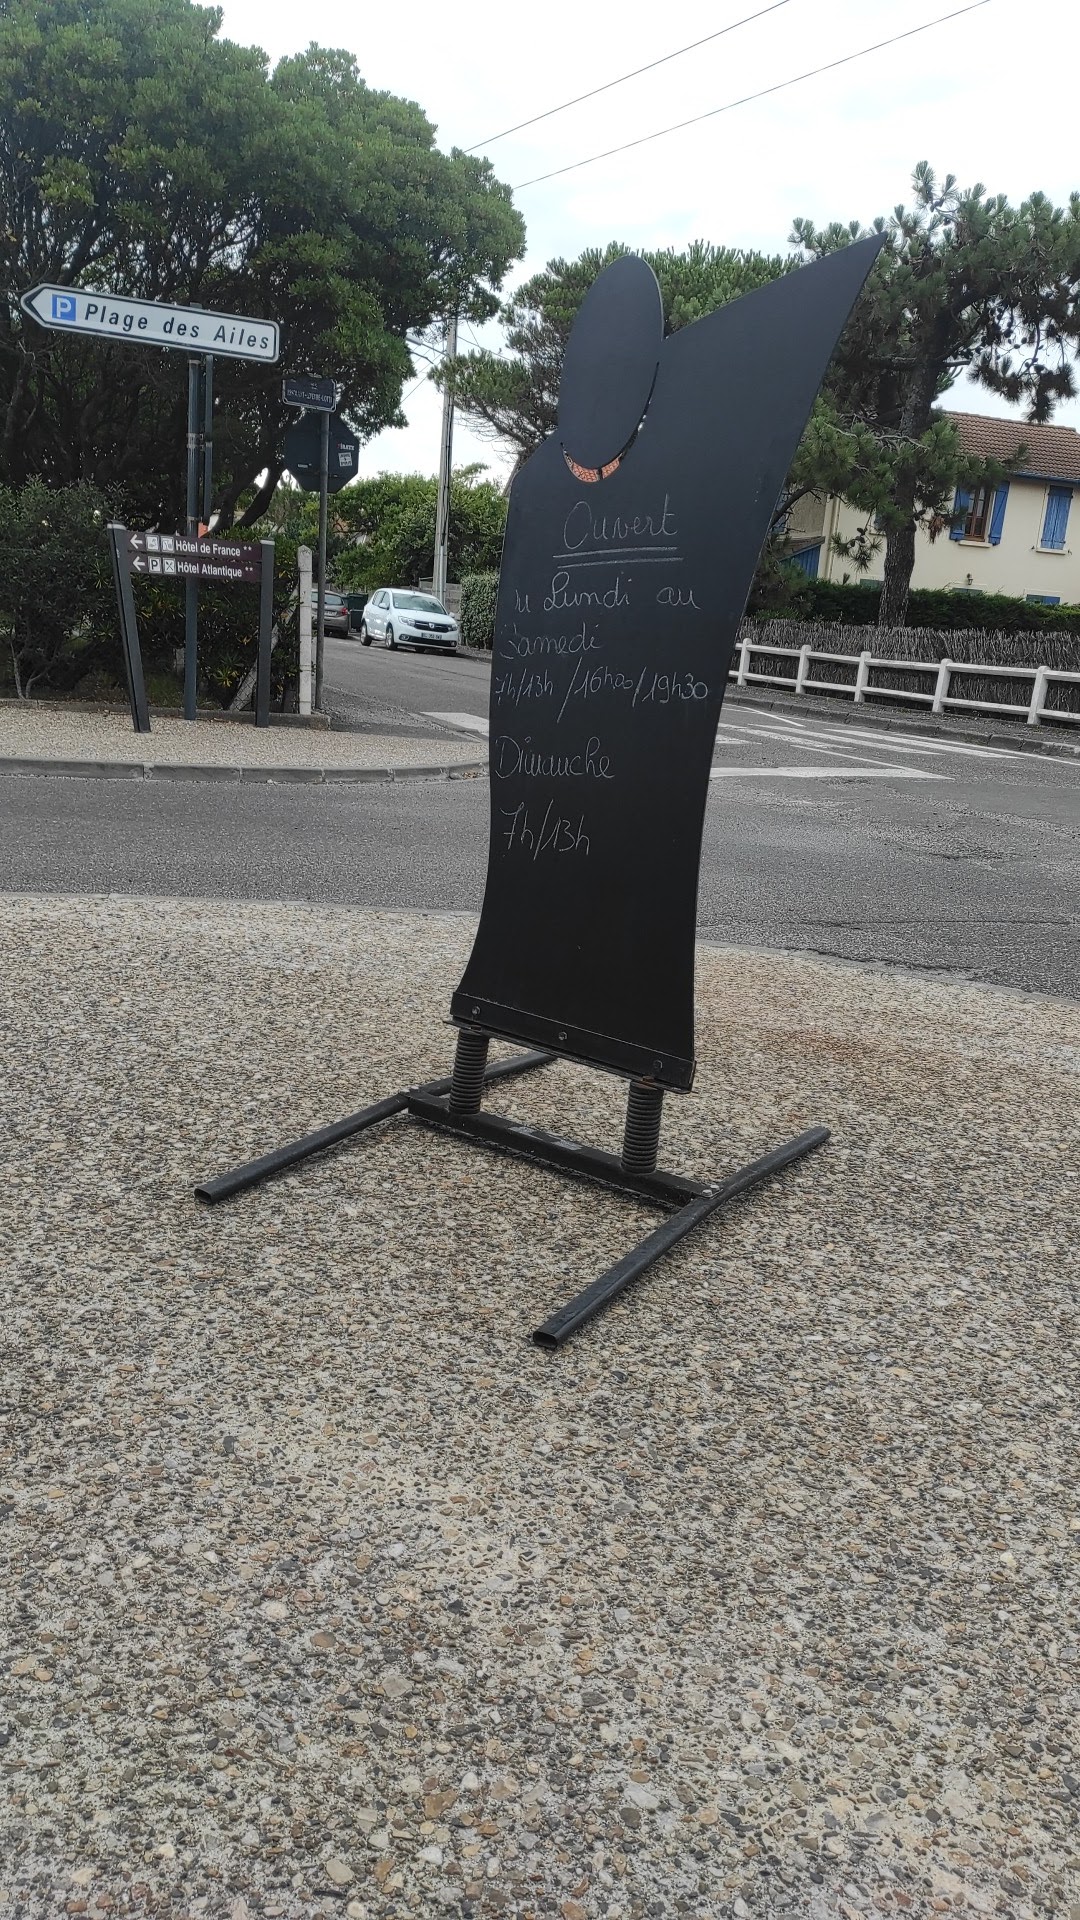 P Plage des Ailes
Hôtel de France **
P Hôtel Atlantique **
Ouvert
du Lundi au
Samedi
7h/13h /16h00/19h30
Dimanche
7h/13h